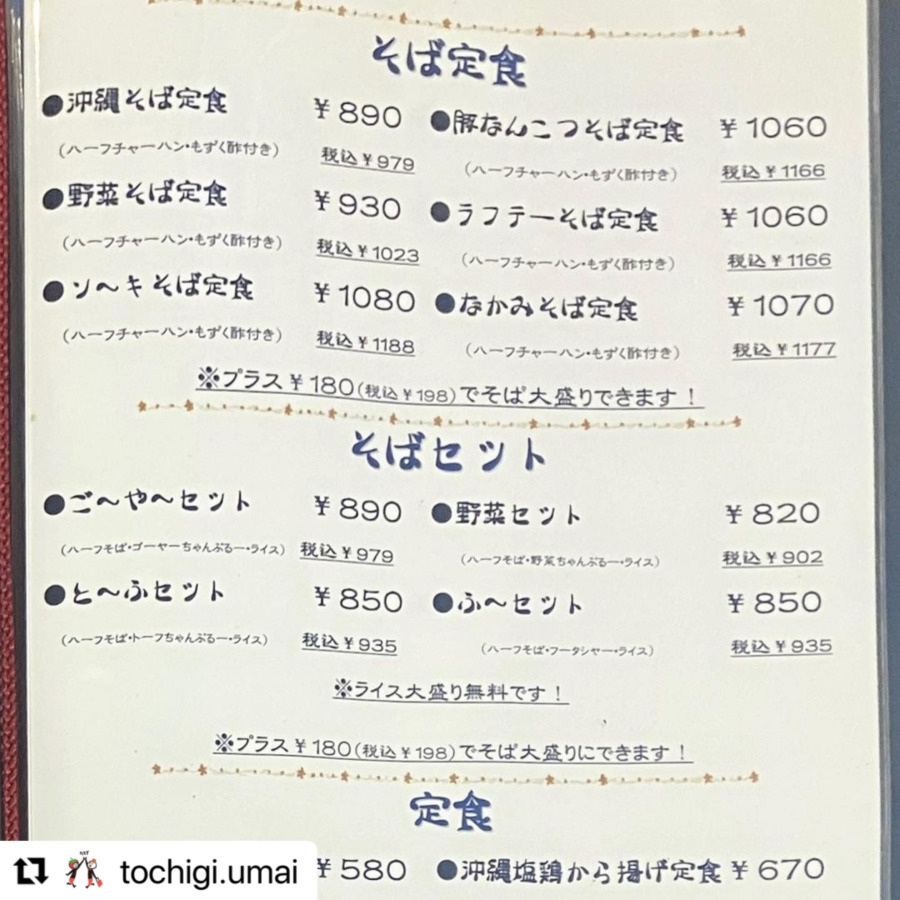 そば定食
●沖縄そば定食 ¥890
(ハーフチャーハン・もずく酢付き) 税込¥979
●豚なんこつそば定食 ¥1060
(ハーフチャーハン・もずく酢付き) 税込¥1166
●野菜そば定食 ¥930
(ハーフチャーハン・もずく酢付き) 税込¥1023
●ラフテーそば定食 ¥1060
(ハーフチャーハン・もずく酢付き) 税込¥1166
●ソ〜キそば定食 ¥1080
(ハーフチャーハン・もずく酢付き) 税込¥1188
●なかみそば定食 ¥1070
(ハーフチャーハン・もずく酢付き) 税込¥1177
※プラス¥180(税込¥198)でそば大盛りできます！
そばセット
●ご〜や〜セット ¥890
(ハーフそば・ゴーヤーちゃんぷるー・ライス) 税込¥979
●野菜セット ¥820
(ハーフそば・野菜ちゃんぷるー・ライス) 税込¥902
●と〜ふセット ¥850
(ハーフそば・トーフちゃんぷるー・ライス) 税込¥935
●ふ〜セット ¥850
(ハーフそば・フータシャー・ライス) 税込¥935
※ライス大盛り無料です！
※プラス¥180(税込¥198)でそば大盛りにできます！
定食
¥580
●沖縄塩鶏から揚げ定食 ¥670
tochigi.umai